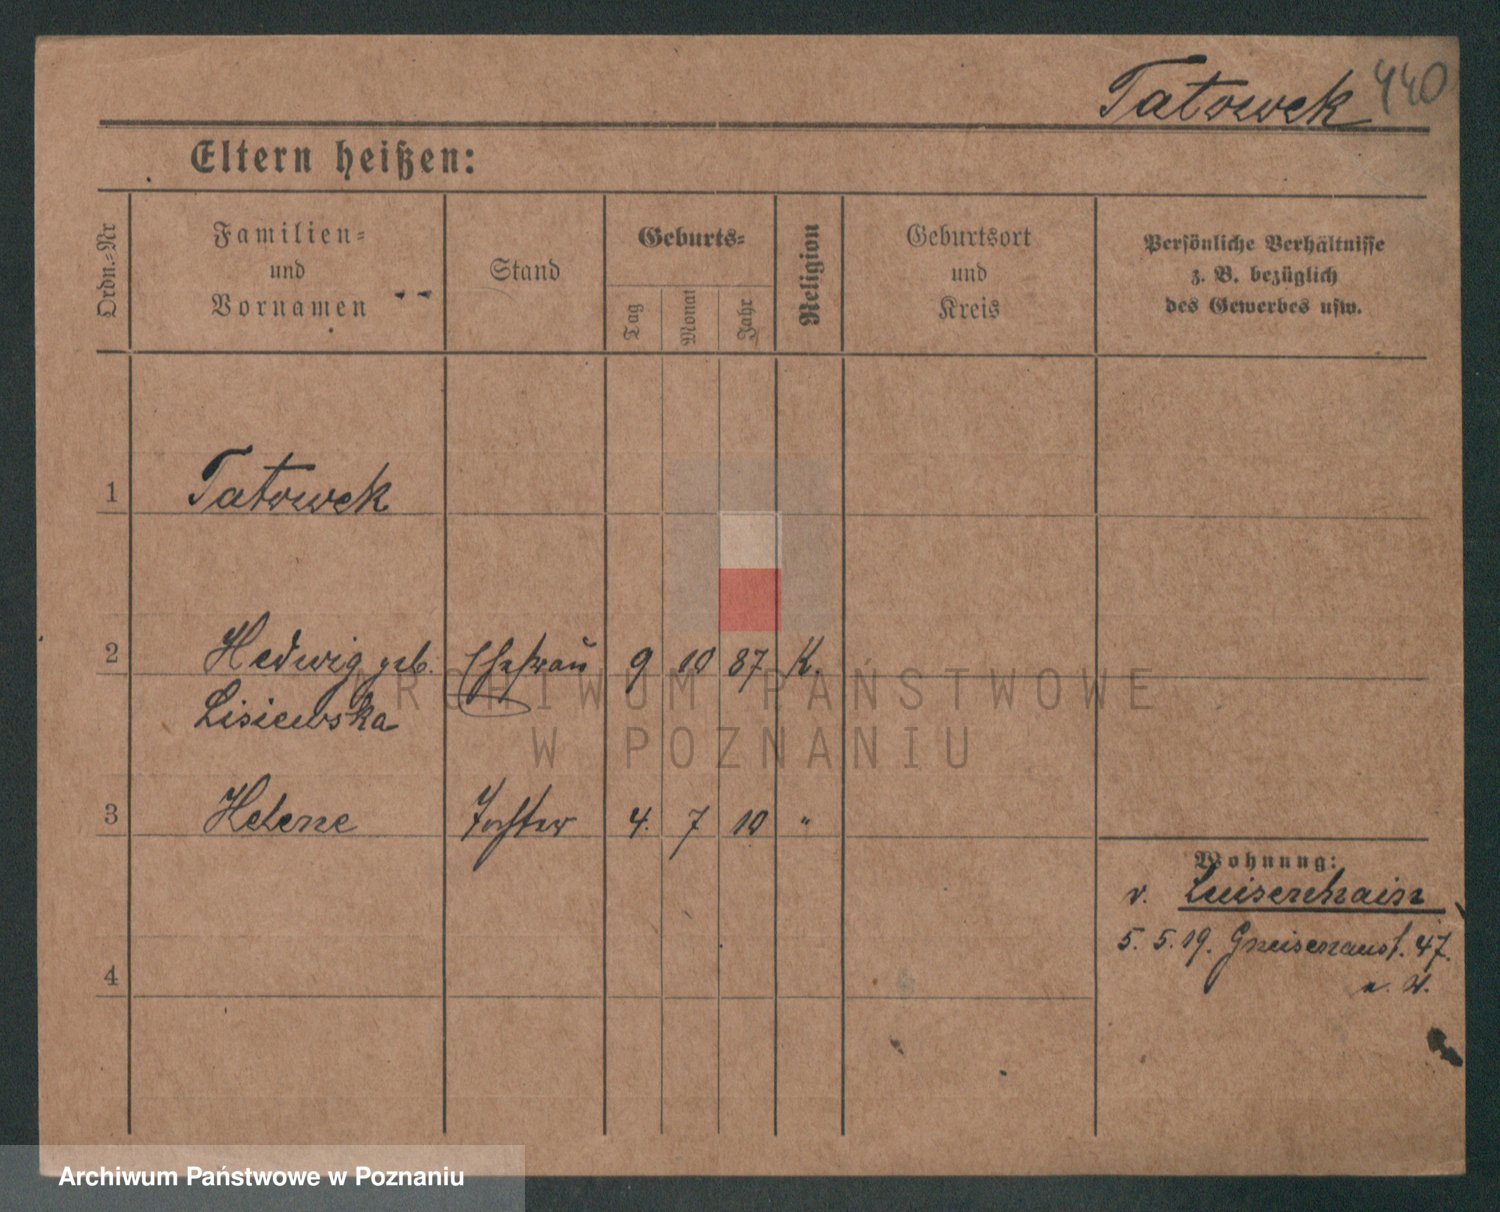 Tatowek 440
Eltern heißen:
Ordn.=Nr
Familien=
und
Vornamen
Stand
Geburts=
Tag
Monat
Jahr
Religion
Geburtsort
und
Kreis
Persönliche Verhältnisse
z. B. bezüglich
des Gewerbes usw.
1 Tatowek
2 Hedwig geb. Ehefrau 9 10 87 K.
Lisiewska
3 Helene Tochter 4. 7 10 "
4
Wohnung:
v. Luisenhain
5. 5. 19. Gneisenaust. 47.
ARCHIWUM PAŃSTWOWE
W POZNANIU
Archiwum Państwowe w Poznaniu